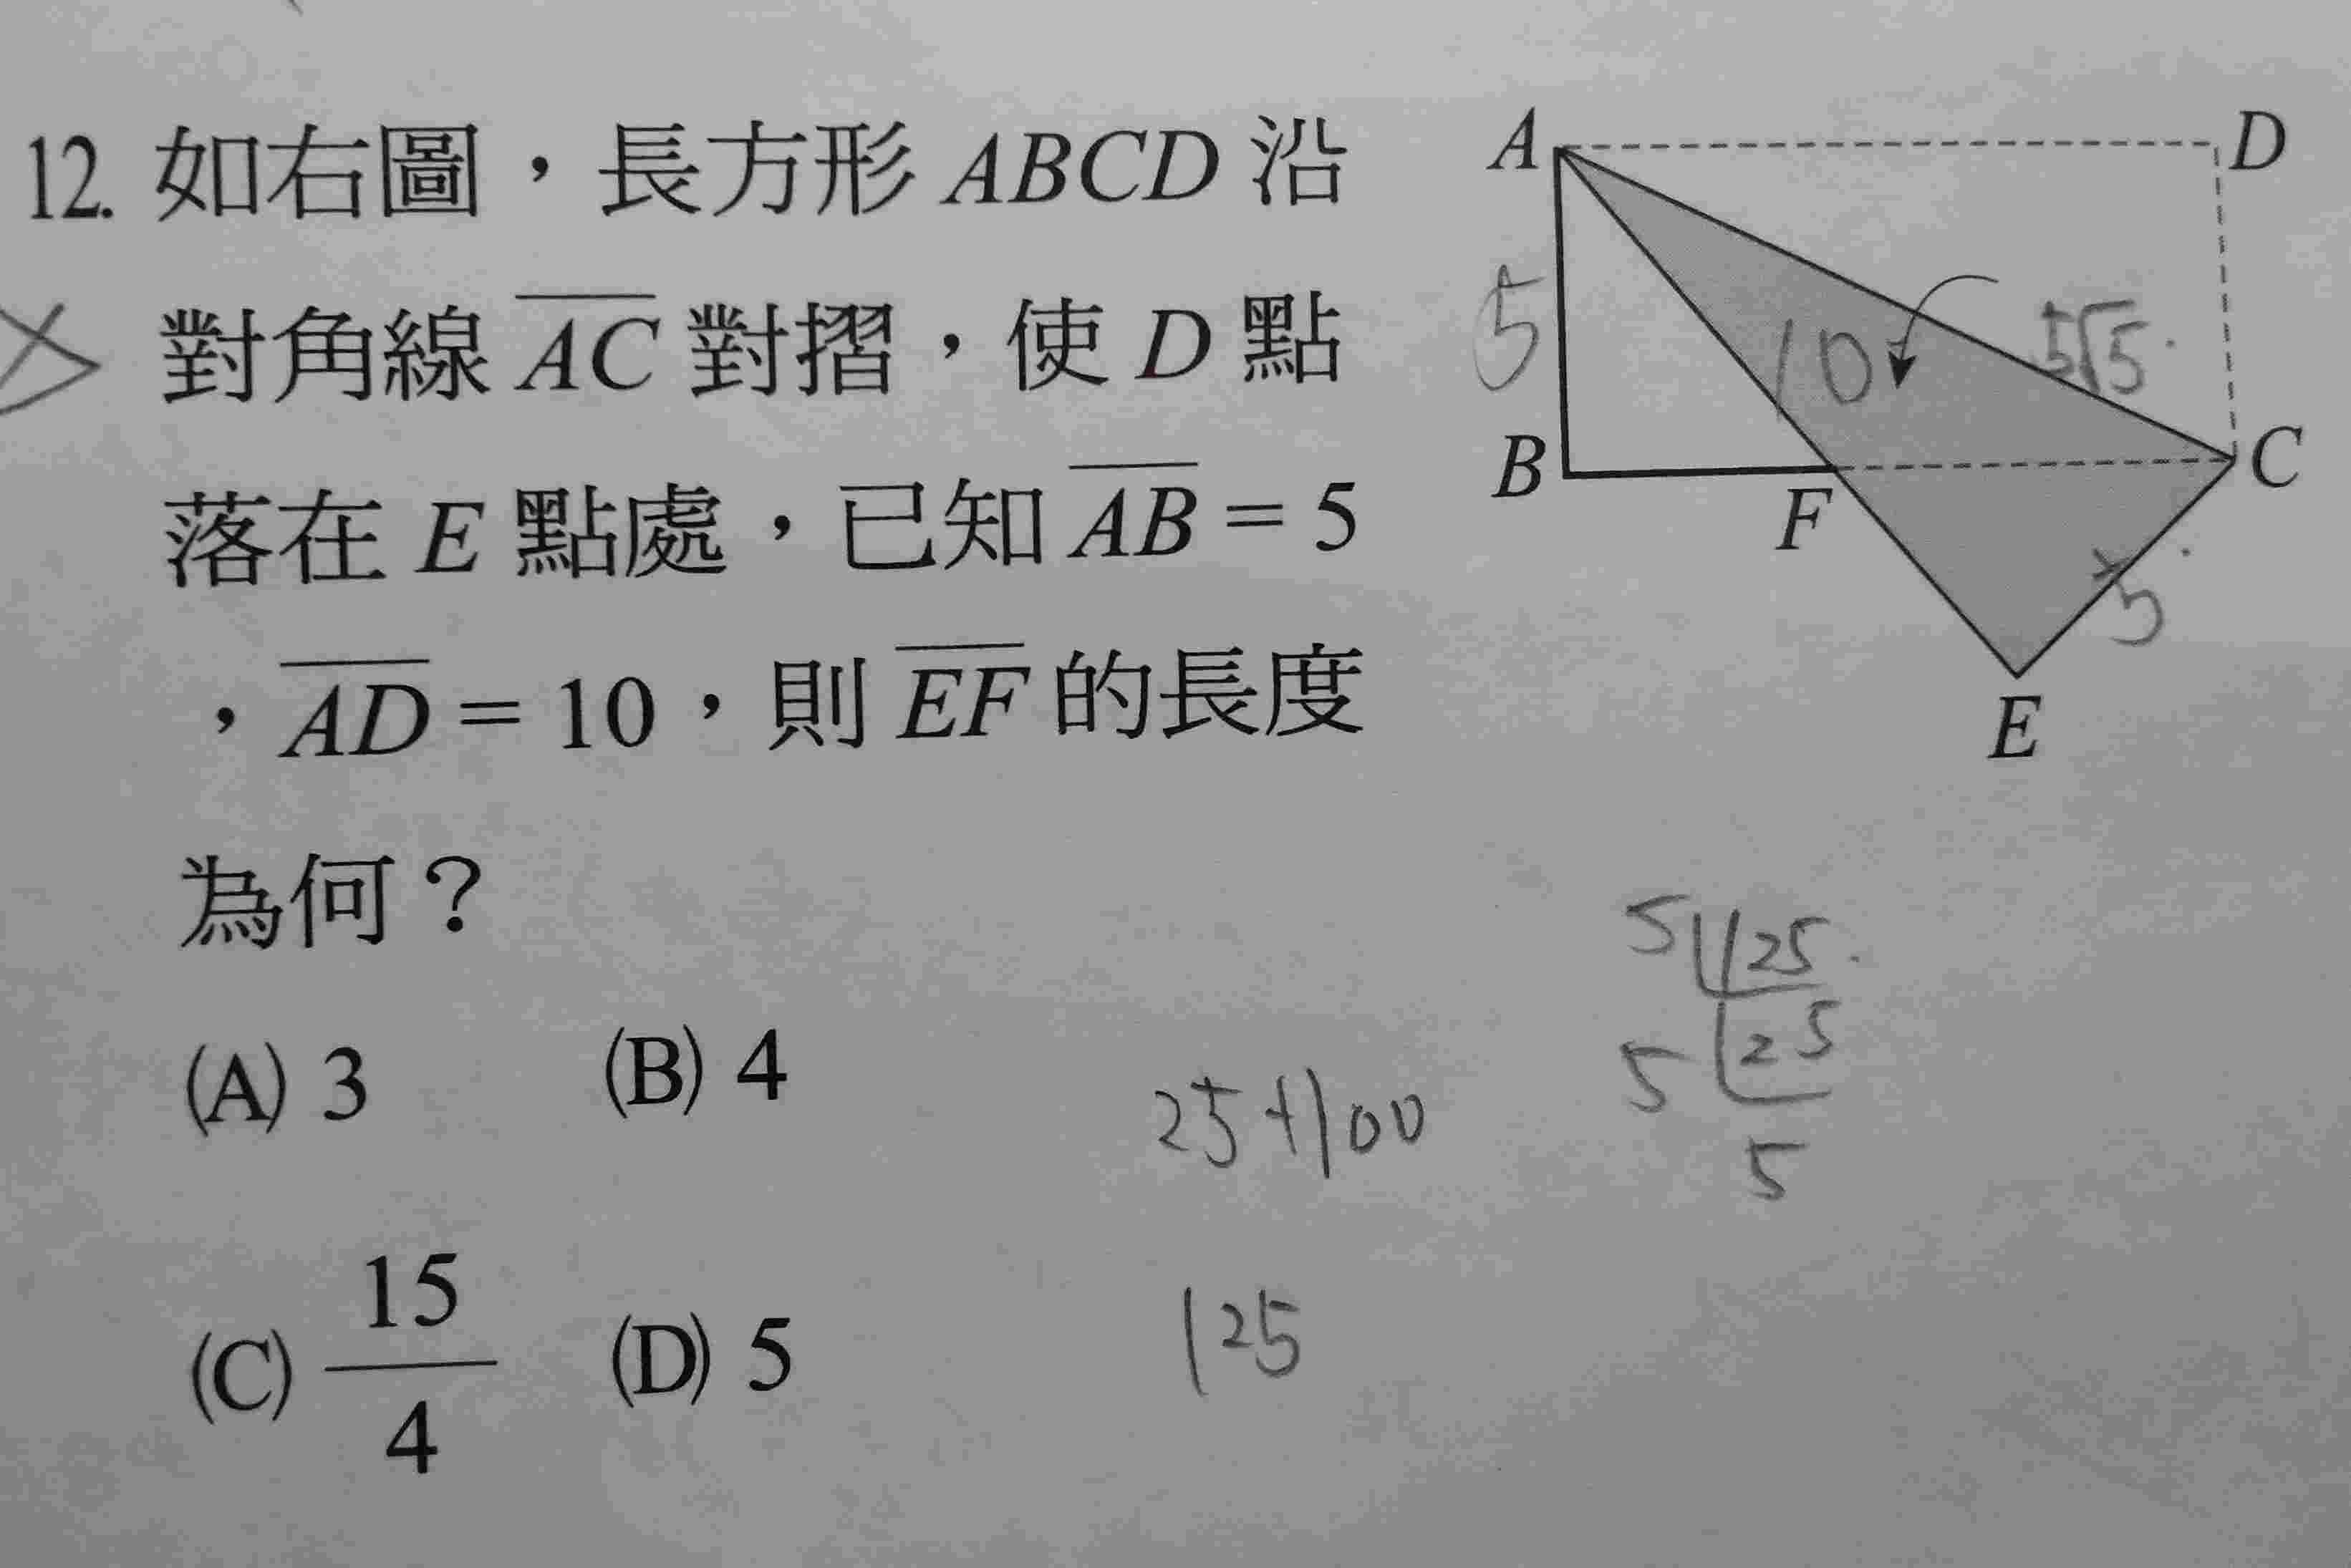 12. 如右圖，長方形 ABCD 沿
對角線 AC 對摺，使 D 點
落在 E 點處，已知 AB = 5
，AD = 10，則 EF 的長度
為何？
(A) 3 (B) 4
(C) 15/4 (D) 5
A D
5 10 5√5
B F C
5
E
5 125
5 25
5
25+100
125